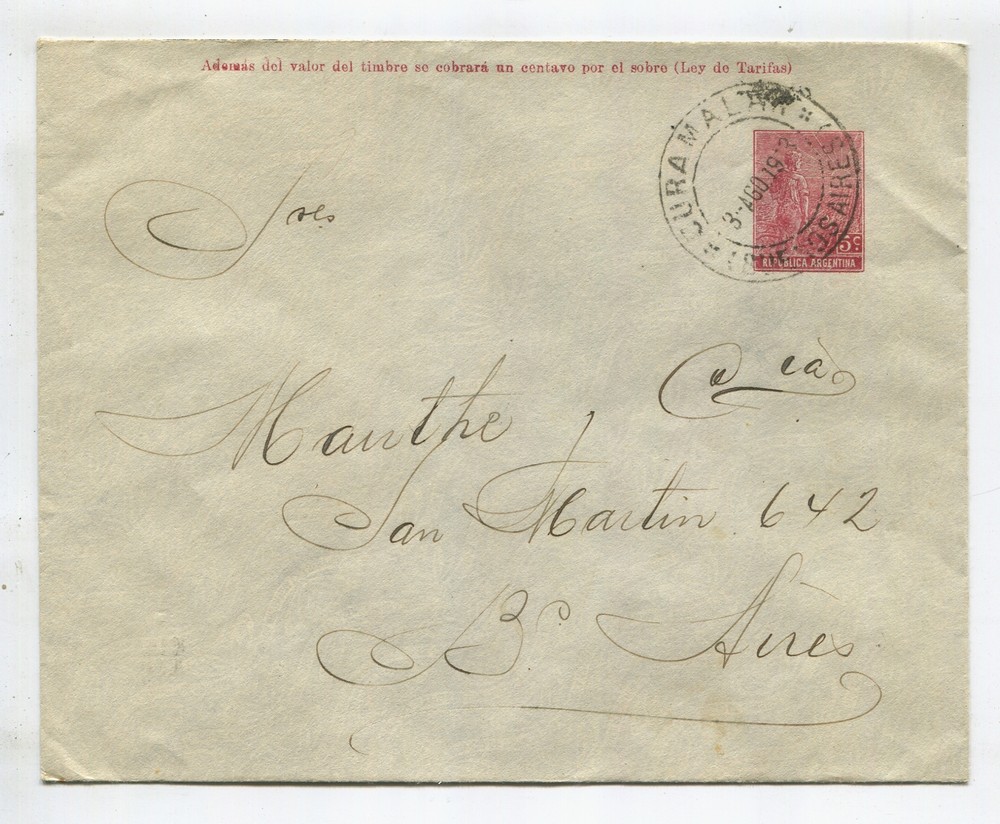 Además del valor del timbre se cobrará un centavo por el sobre (Ley de Tarifas)
CURAMALAN
Bs AIRES
3-AGO.191
5c
REPUBLICA ARGENTINA
Sres
Manthe
Cia
San Martin 642
Bs Aires